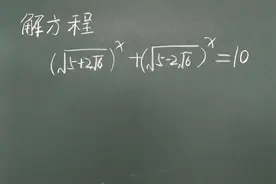 解方程
(√(5+2√6))^x+(√(5-2√6))^x=10